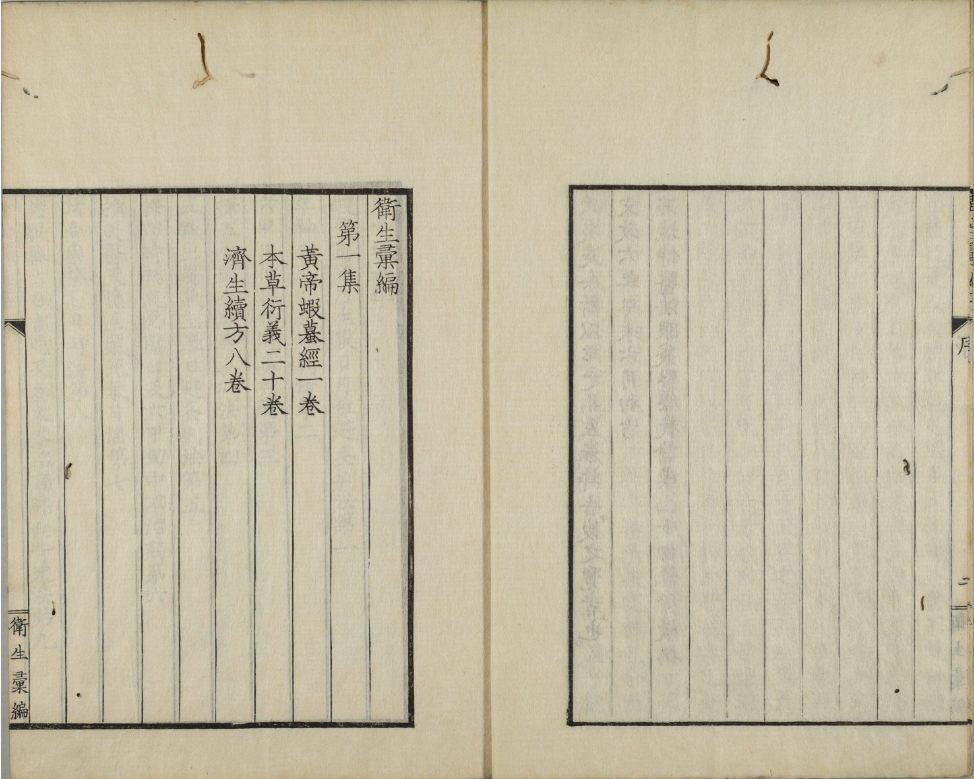 序
二
衛生彙編
第一集
黃帝蝦蟇經一卷
本草衍義二十卷
濟生續方八卷
衛生彙編